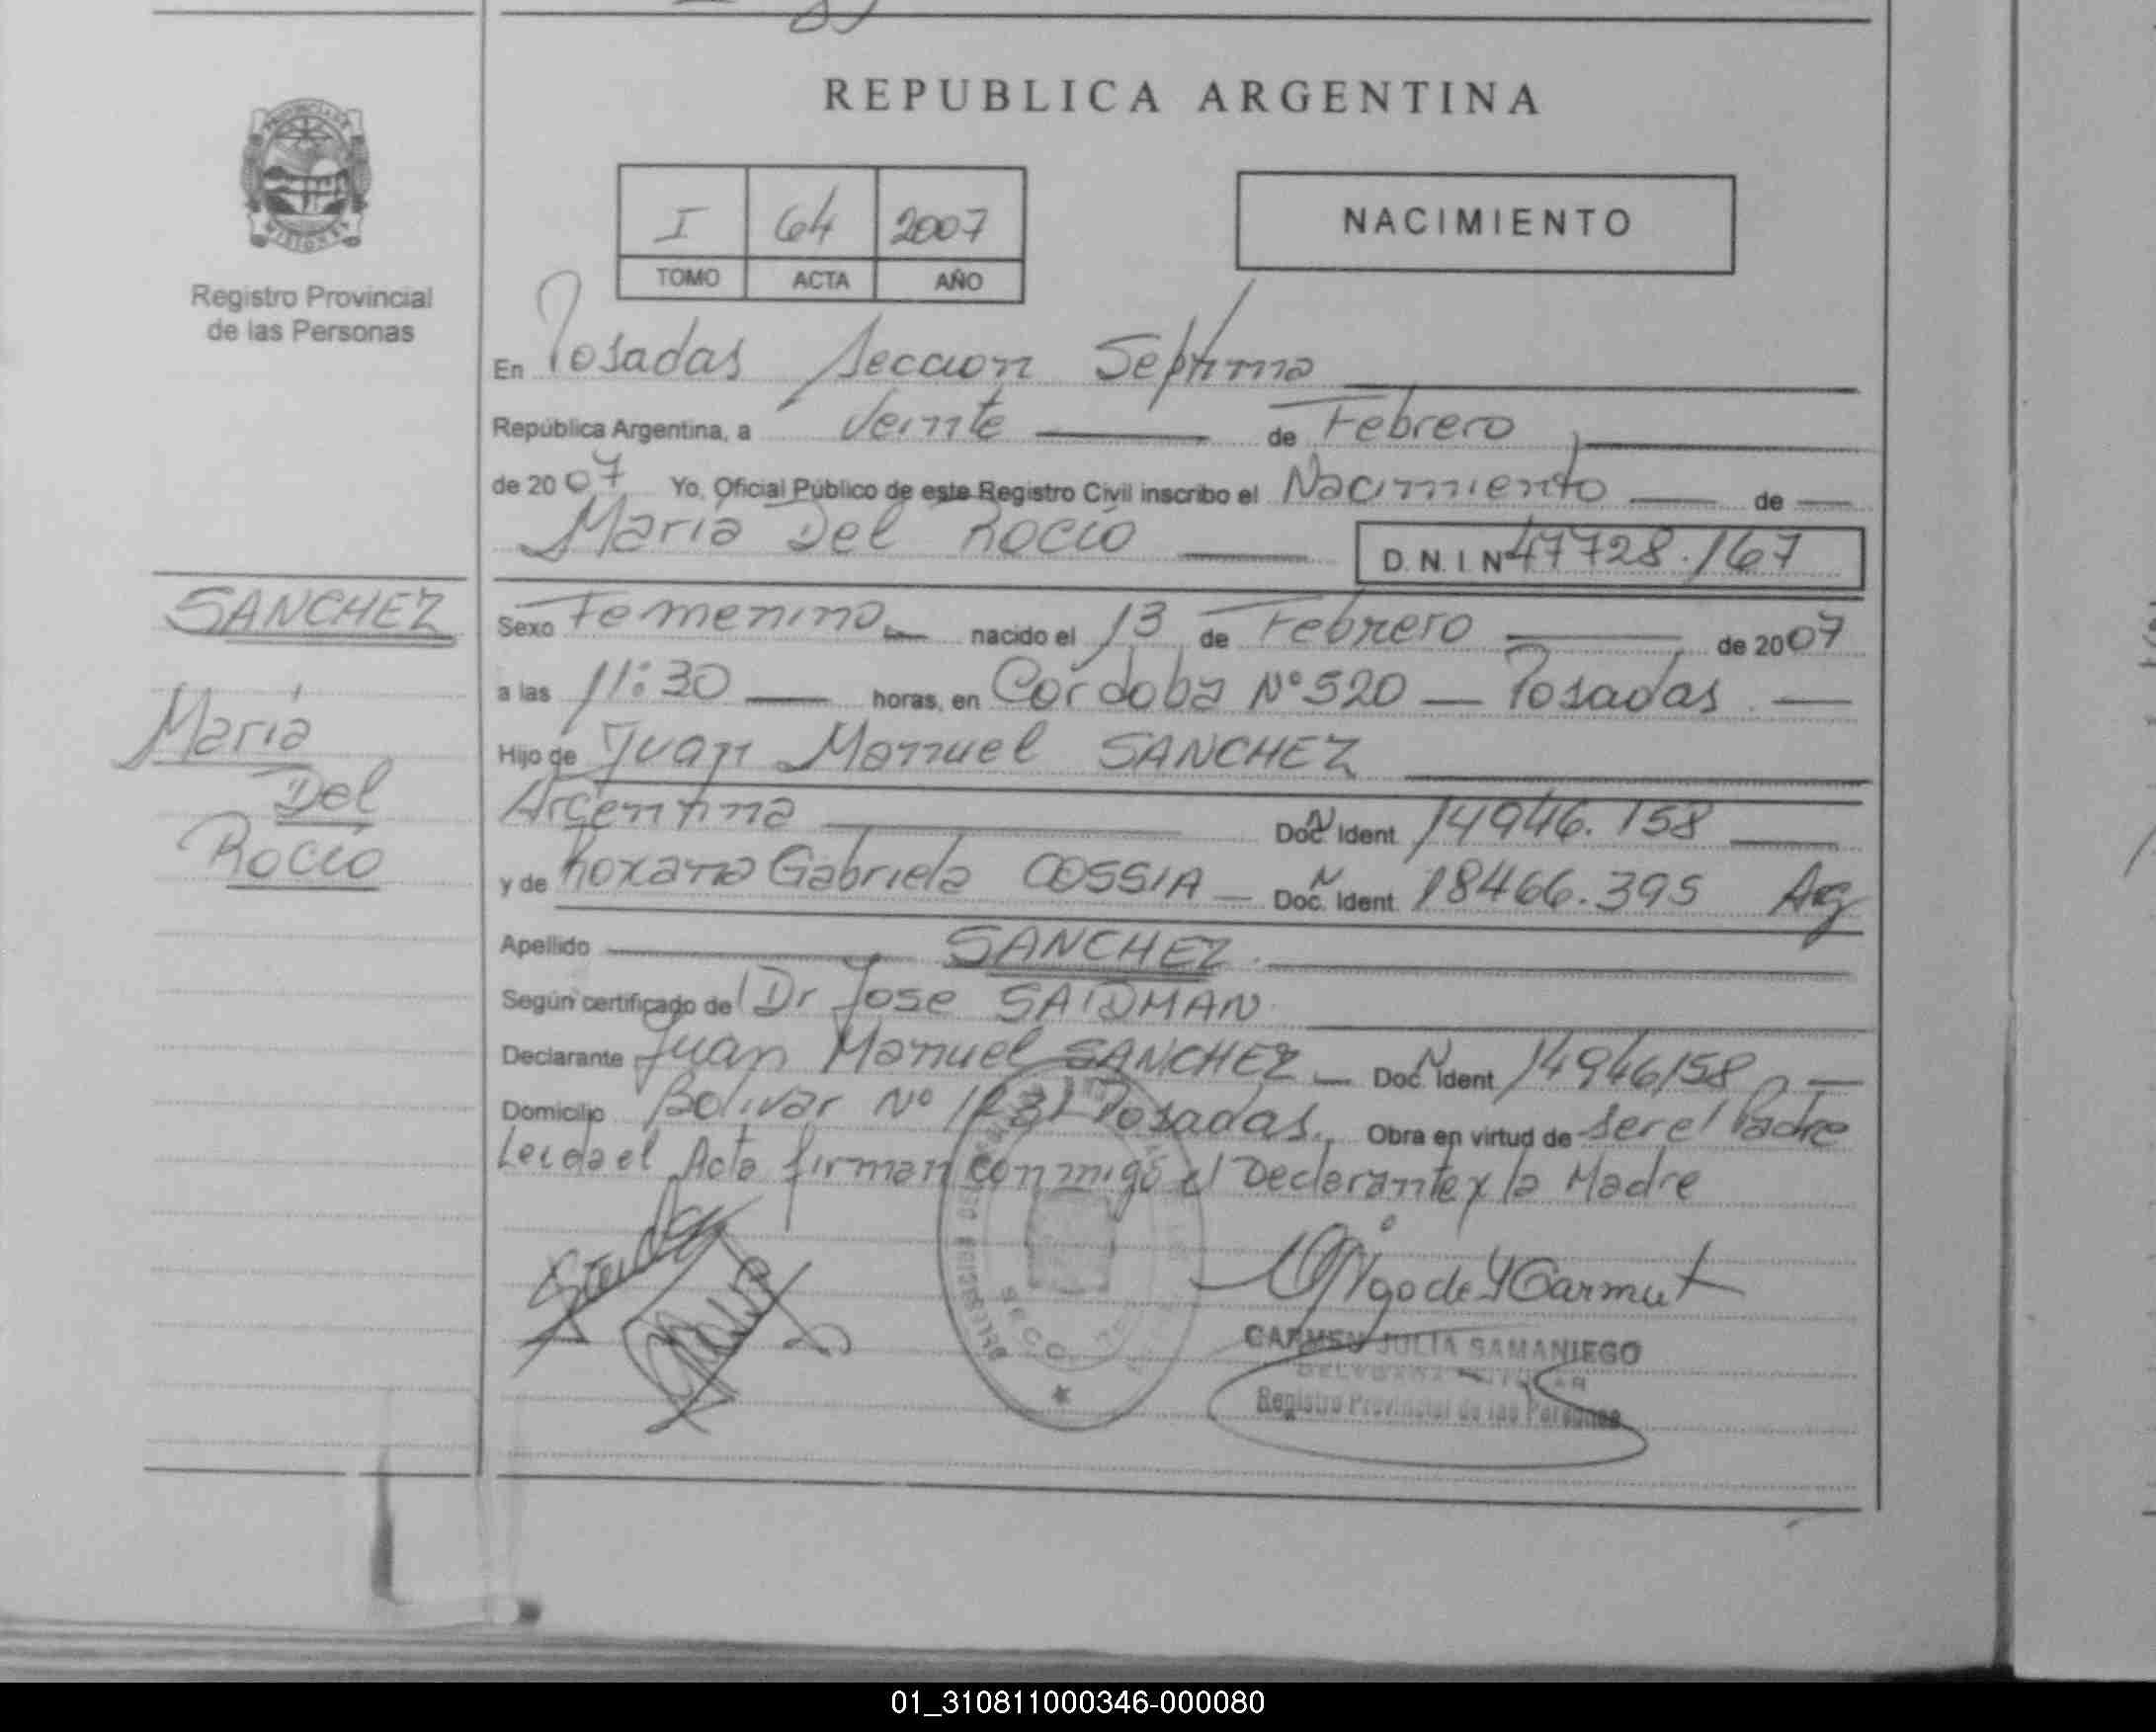 REPUBLICA ARGENTINA
PROVINCIA DE
MISIONES
Registro Provincial
de las Personas
I 64 2007
TOMO ACTA AÑO
NACIMIENTO
En Posadas Seccion Septima
República Argentina, a Veinte de Febrero
de 2007 Yo, Oficial Público de este Registro Civil inscribo el Nacimiento de
Maria Del Rocío
D.N.I. Nº 47728.167
SANCHEZ
María
Del
Rocío
Sexo Femenino nacido el 13 de Febrero de 2007
a las 11:30 horas, en Córdoba Nº 520 — Posadas
Hijo de Juan Manuel SANCHEZ
Argentina Doc. Ident. N 14946.158
y de Roxana Gabriela COSSIA — Doc. Ident. N 18466.395 Arg
Apellido SANCHEZ
Según certificado del Dr Jose SAIDMAN
Declarante Juan Manuel SANCHEZ — Doc. Ident. N 14946158
Domicilio Bolivar Nº Posadas. Obra en virtud de ser el Padre
Leida el Acta firman conmigo el Declarante y la Madre
CARMEN JULIA SAMANIEGO
Registro Provincial de las Personas
01_310811000346-000080